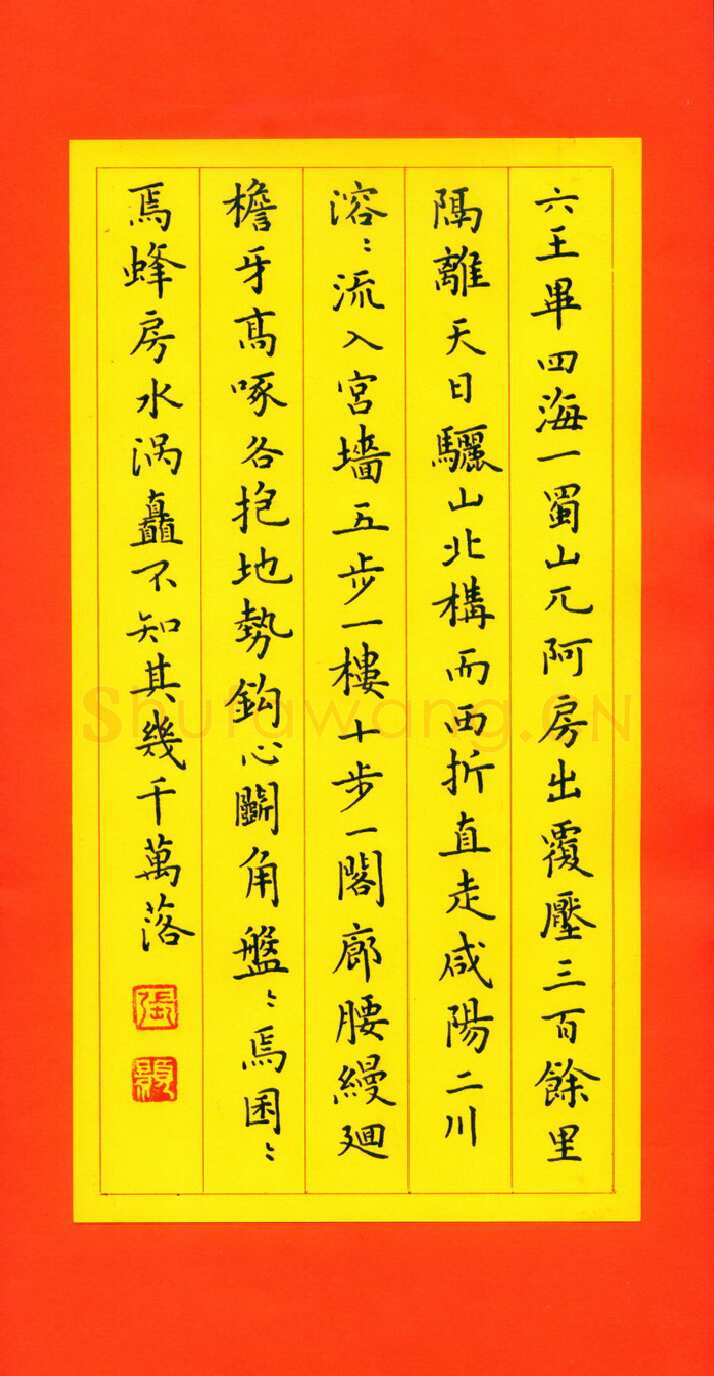 六王畢四海一蜀山兀阿房出覆壓三百餘里
隔離天日驪山北構而西折直走咸陽二川
溶〻流入宮墻五步一樓十步一閣廊腰縵廻
檐牙高啄各抱地勢鈎心鬭角盤〻焉囷〻
焉蜂房水涡矗不知其幾千萬落
張
Shufawang.CN